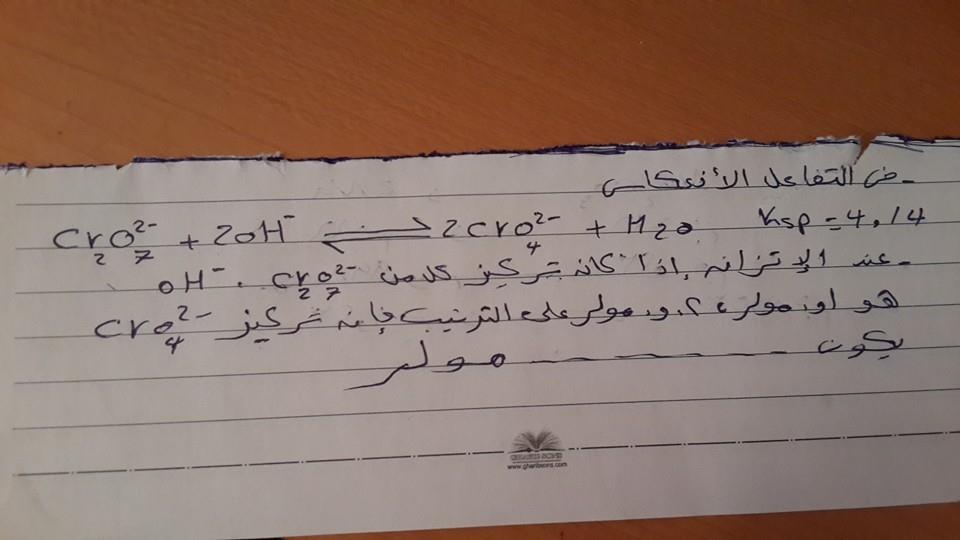 - في التفاعل الأنعكاسى
Cr₂O₇²⁻ + 2OH⁻ ⇌ 2CrO₄²⁻ + H₂O Ksp = 4.14
- عند الإتزان إذا كان تركيز كلا من Cr₂O₇²⁻ ، OH⁻
هو ١و. مولر ، ٢.و. مولر على الترتيب فإنه تركيز CrO₄²⁻
يكون ـــــــــ مولر
GHARIBEONS
www.gharibeons.com